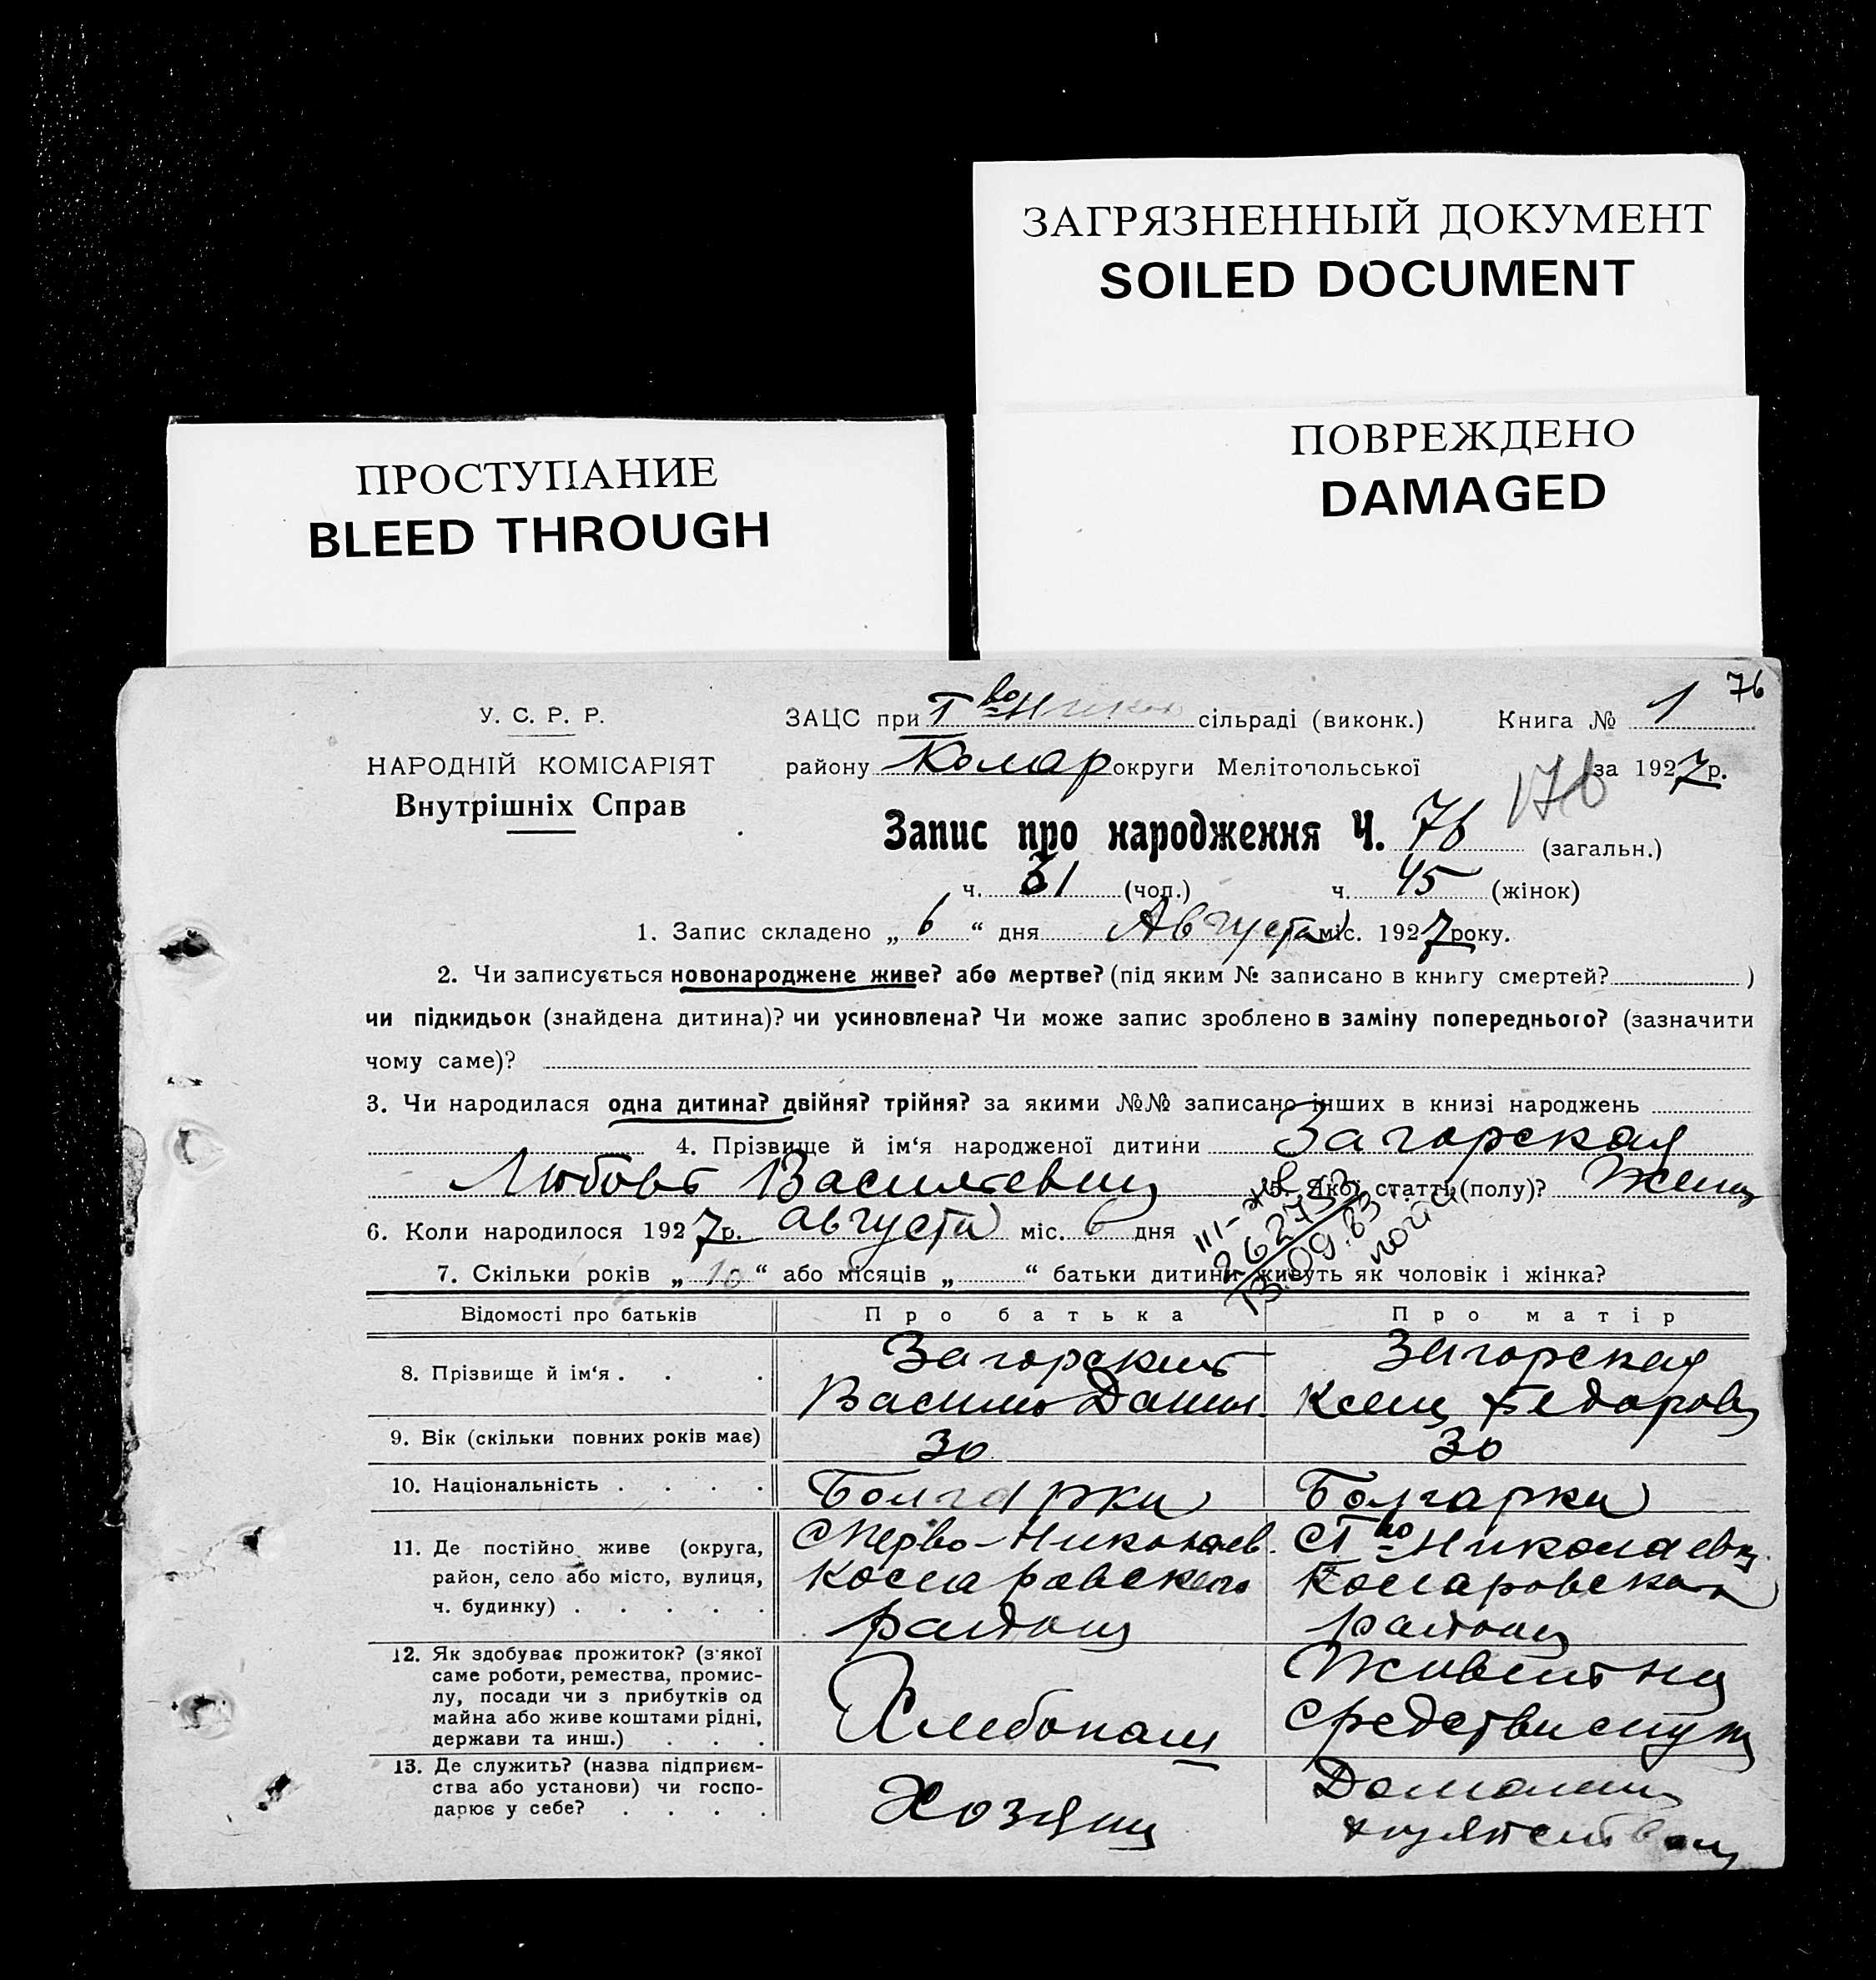 ЗАГРЯЗНЕННЫЙ ДОКУМЕНТ
SOILED DOCUMENT
ПОВРЕЖДЕНО
DAMAGED
ПРОСТУПАНИЕ
BLEED THROUGH
76
У. С. Р. Р.
НАРОДНІЙ КОМІСАРІЯТ
Внутрішніх Справ
ЗАЦС при сільраді (виконк.) Книга № 1
району Колар округи Мелітопольської за 1927 р.
176
Запис про народження Ч. 76 (загальн.)
ч. 31 (чол.) ч. 45 (жінок)
1. Запис складено „ 6 “ дня Августа міс. 1927 року.
2. Чи записується новонароджене живе? або мертве? (під яким № записано в книгу смертей? )
чи підкидьок (знайдена дитина)? чи усиновлена? Чи може запис зроблено в заміну попереднього? (зазначити
чому саме)?
3. Чи народилася одна дитина? двійня? трійня? за якими №№ записано інших в книзі народжень
4. Прізвище й ім‘я народженої дитини Загорская
Любовь Васильевна 5. Якої статті (полу)? Женщ
6. Коли народилося 1927 р. августа міс. 6 дня
III-ЖВ
262733
13.09.83
7. Скільки років „ 10 “ або місяців „ “ батьки дитини живуть як чоловік і жінка?
Відомості про батьків Про батька Про матір
8. Прізвище й ім‘я . . . Загорский Загорская
Василь Данил. Ксен Федоров
9. Вік (скільки повних років має) 30 30
10. Національність . . . . Болгарки Болгарки
11. Де постійно живе (округа, район, село або місто, вулиця, ч. будинку) . . . . .
с Перво-Николаев. с І во Николаевк
Коларовского Коларовского
района района
12. Як здобуває прожиток? (з‘якої
саме роботи, ремества, промис-
лу, посади чи з прибутків од
майна або живе коштами рідні,
держави та инш.) . . .
Хлебопаш
Живет на
средстви мужа
13. Де служить? (назва підприєм-
ства або установи) чи госпо-
дарює у себе? . . . .
Хозяин
Домашн